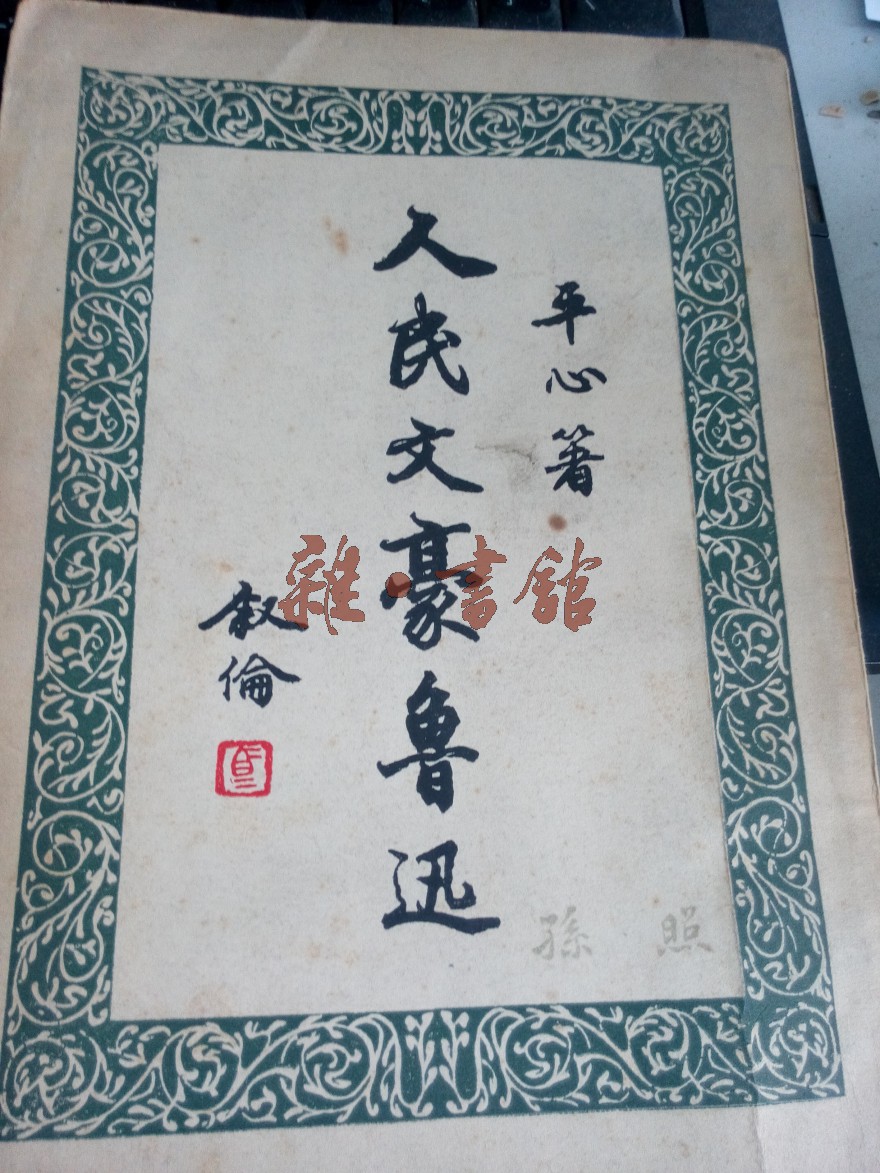 平心著
人民文豪魯迅
叙倫
雜·書館
孫 照